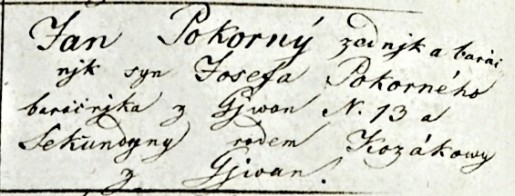 Jan Pokorný zednjk a baráč
njk syn Josefa Pokorného
baráčnjka z Gjwan N. 13 a
Sekundyny rodem Kozákowy
z Gjwan.